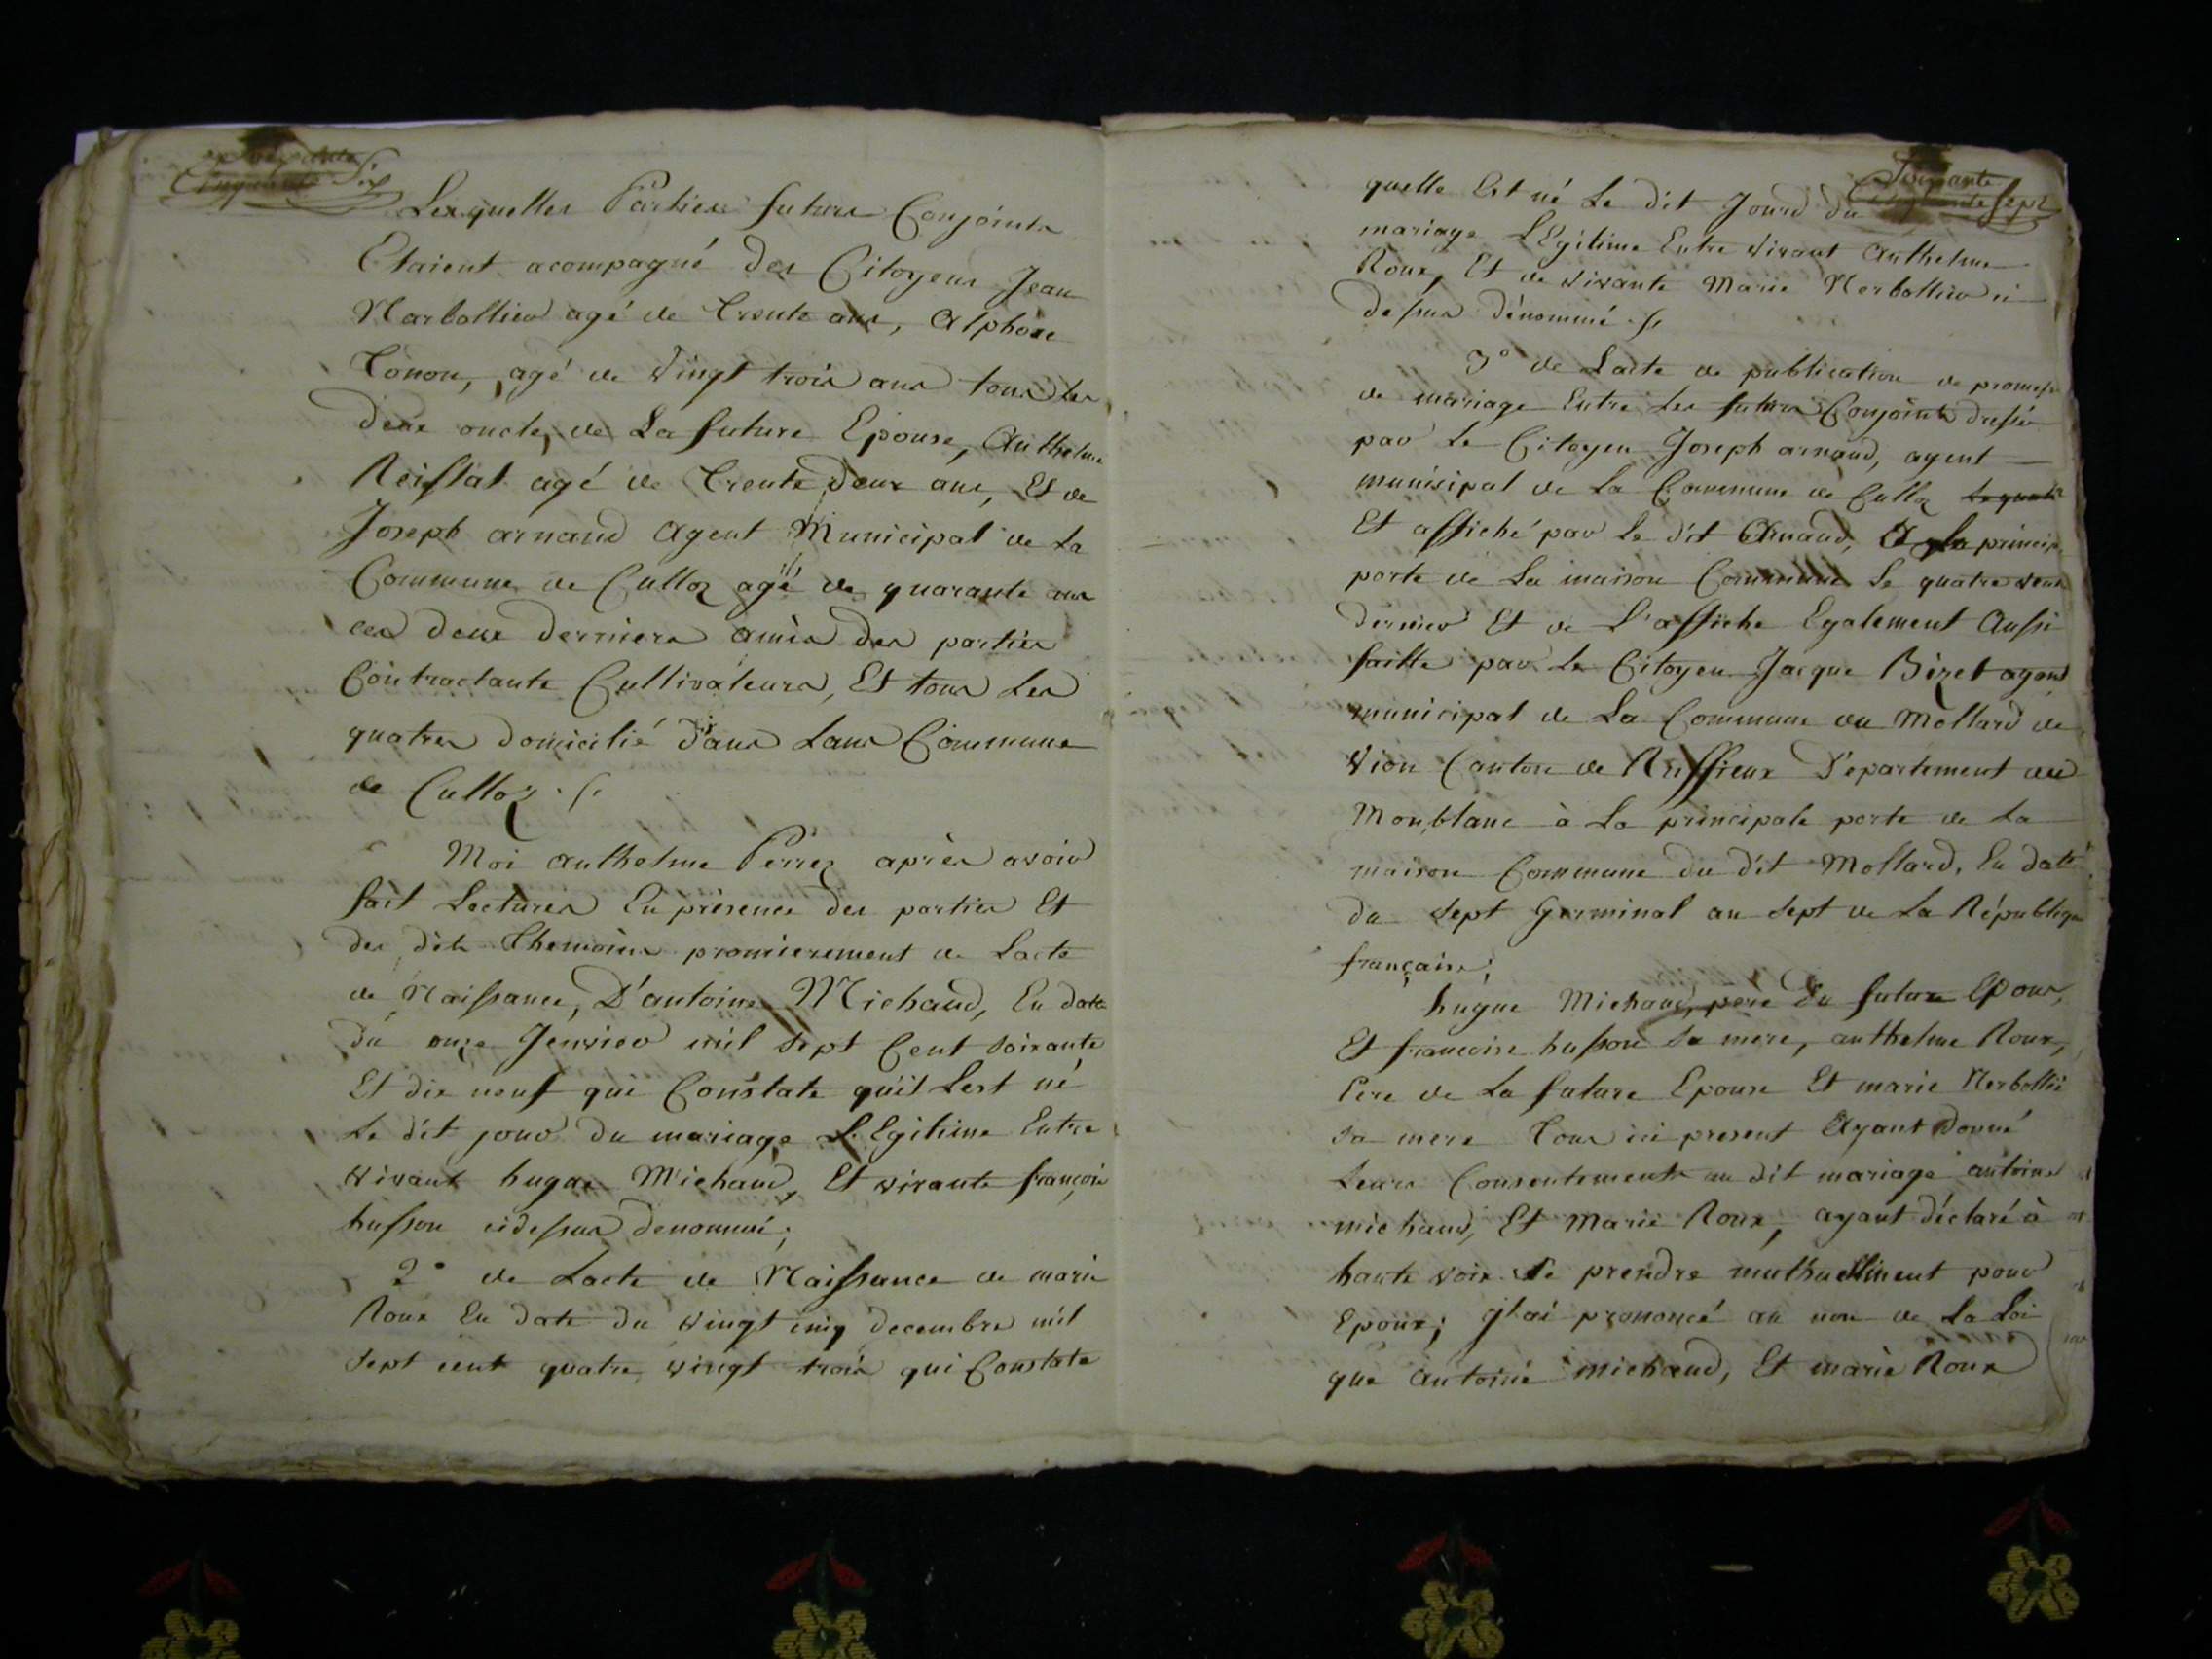 Soixante
Cinquante Six
Lesquelles Parties futurs Conjoints
Etaient acompagné des Citoyens Jean
Narbollier agé de trente ans, Alphonse
Conon, agé de vingt trois ans tous les
deux oncle, de La future Epouse, Anthelme
Reistat agé de trente deux ans, Et de
Joseph arnaud Agent Municipal de La
Commune de Culloz agé de quarante ans
ces deux derniers amis des parties
Contractante Cultivateurs, Et tous Les
quatres domicilié dans Lans Commune
de Culloz
Moi anthelme Perrez après avoir
fait Lectures En présence des parties Et
des dits Themoins promierement de Lacte
de Naissance, D'antoine Michaud, En date
du onze Jenvier mil sept Cent soixante
Et dix neuf qui Constate quil Lest né
Le dit jour du mariage LEgitime Entre
vivant hugue Michaud, Et vivante françoise
husson cidessus denommé;
2° de Lacte de Naissance de marie
Roux En date du vingt cinq decembre mil
sept cent quatre vingt trois qui Constate
Soixante
Cinquante sept
quelle Est né Le dit Jourd du
mariage LEgitime Entre vivant Anthelme
Roux, Et de vivante Marie Nerbollier ci
dessus dénommé
3° de Lacte de publication de promesse
de mariage Entre Les futurs Conjoints dressée
par Le Citoyen Joseph arnaud, agent
municipal de La Commune de Culloz Lequel
Et affiché par le dit Arnaud, A La princip.
porte de La maison Commune Le quatre vent
dernier Et de L'affiche Egalement Aussi
faitte par Le Citoyen Jacque Bizet agent
municipal de La Commune du Mollard de
Vion Canton de Ruffieux Département du
Monblanc à La principale porte de La
maison Commune du dit Mollard, En date
du sept Germinal an sept de La République
française;
hugue Michaud, pere du future Epoux,
Et francoise husson sa mere, anthelme Roux,
Pere de La future Epouse Et marie Nerbollie
sa mere tous ici present Ayant donné
Leurs Consentements au dit mariage antoine
michaud, Et Marie Roux, ayant déclaré à
haute voix Se prendre muthuellment pour
Epoux; Jai prononcé au nom de La Loi
que antoine michaud, Et marie Roux